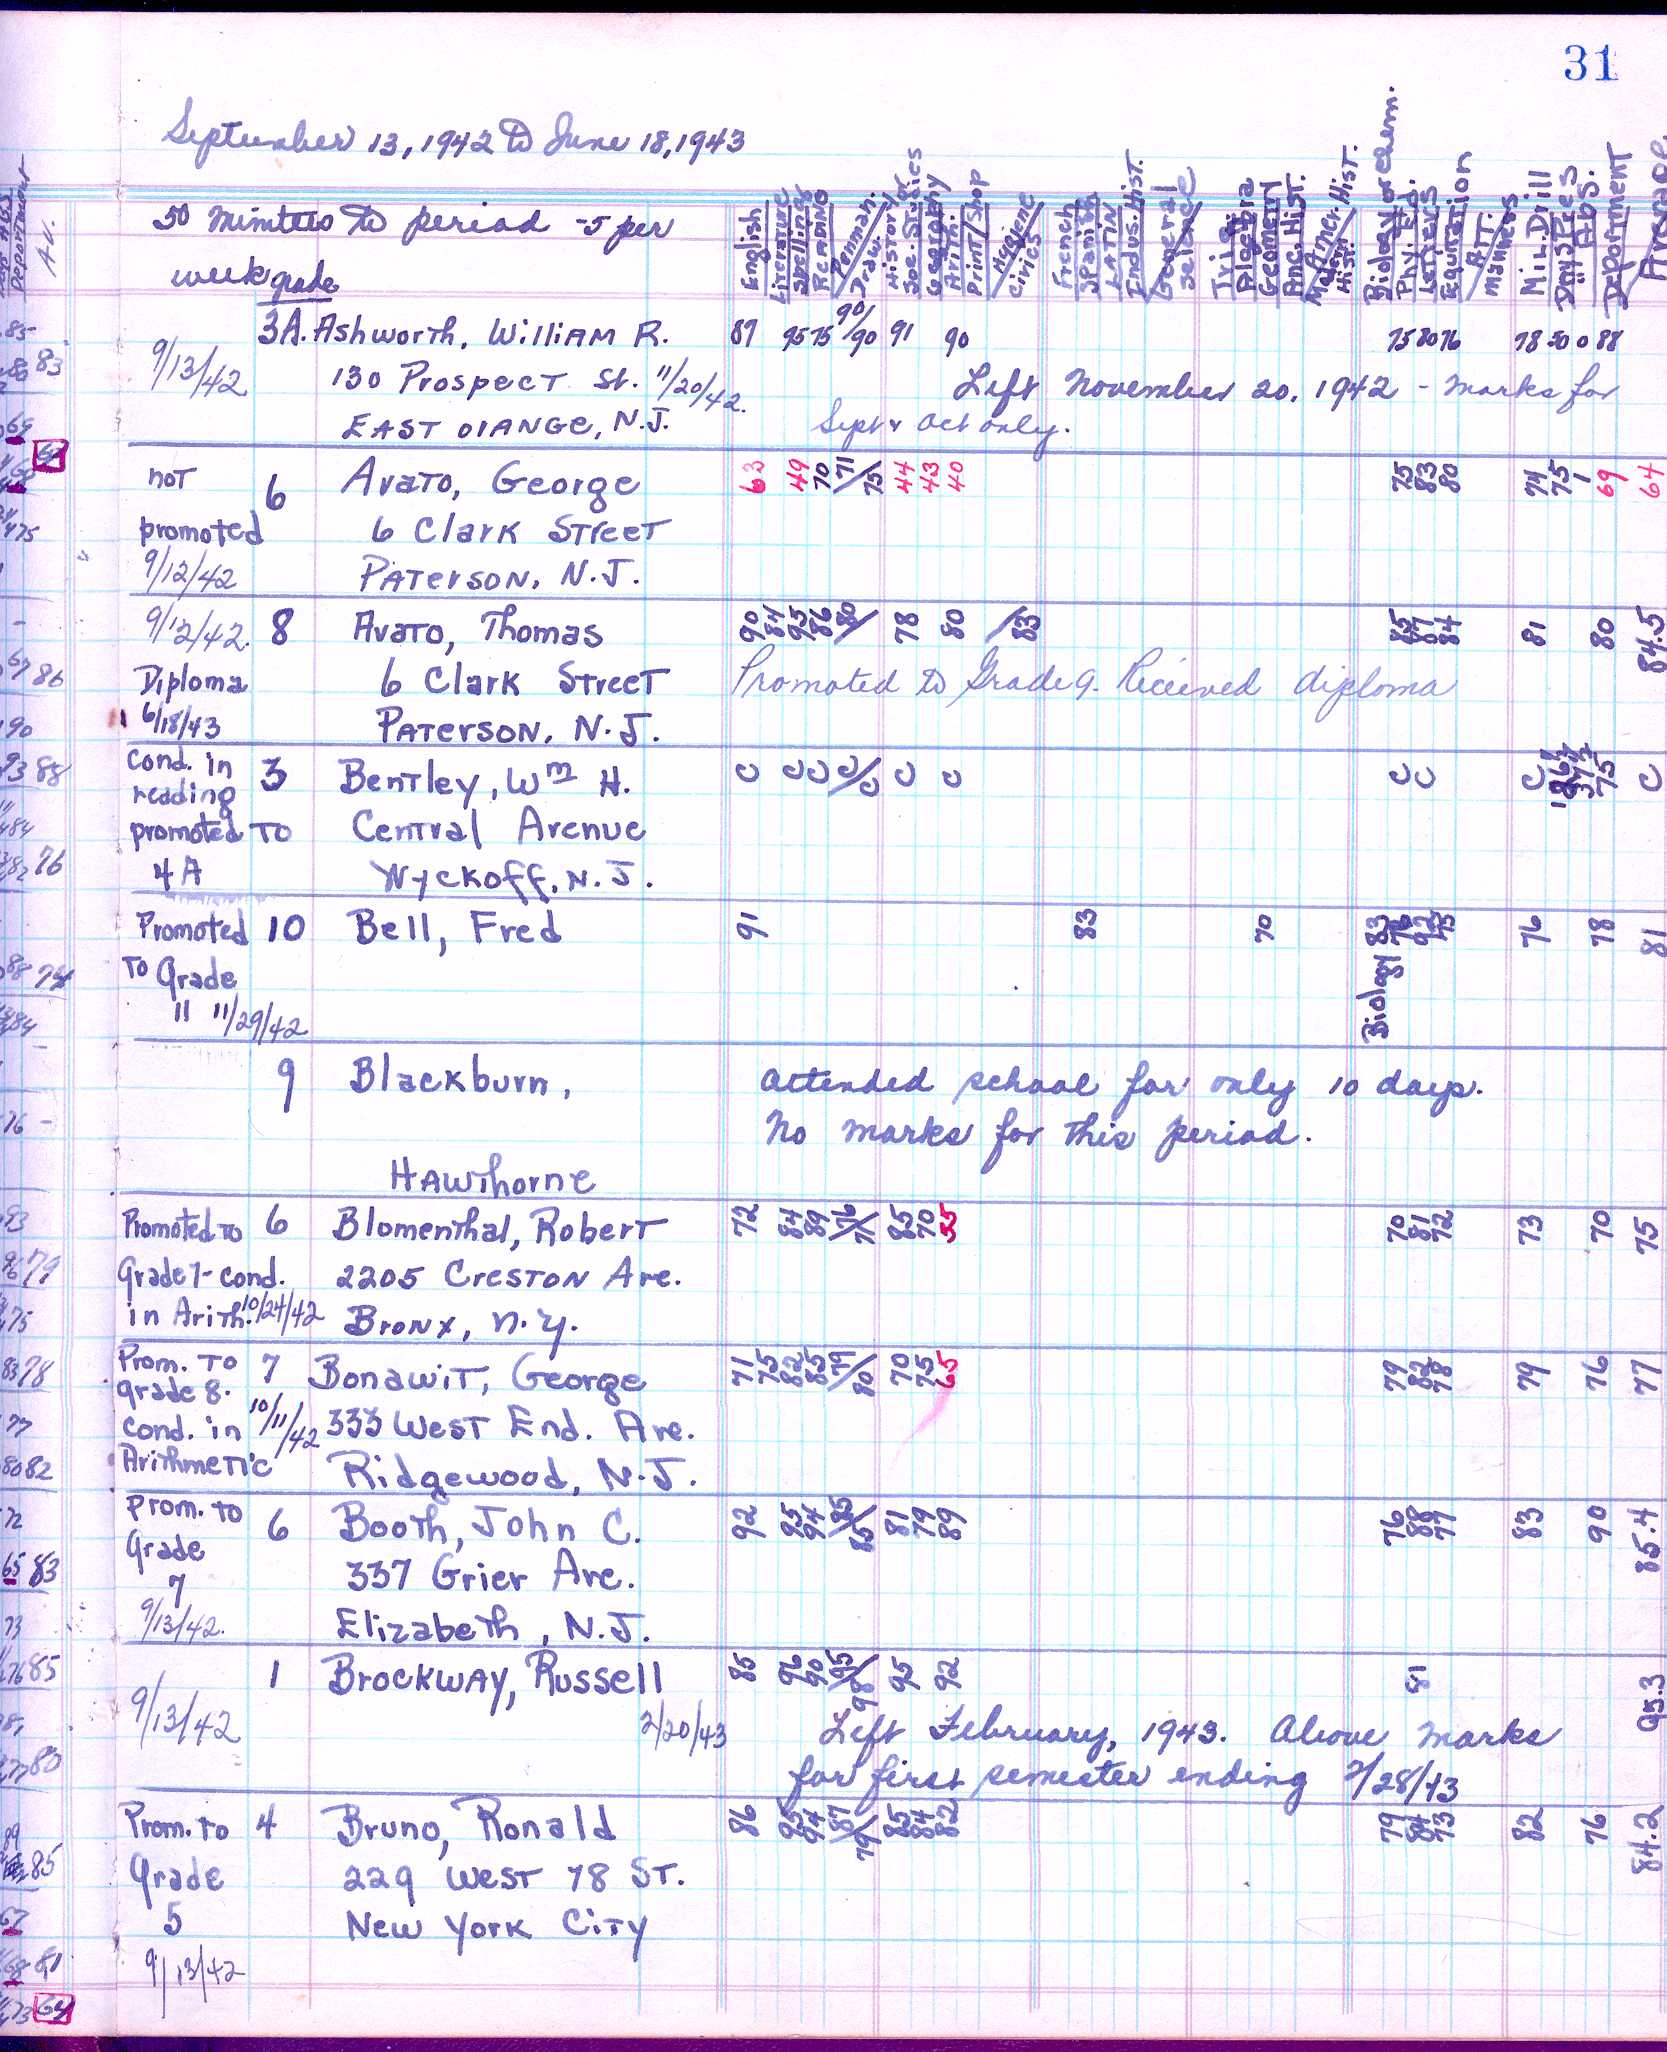 31
September 13, 1942 to June 18, 1943
50 minutes to period - 5 per
week grade
English Literature Spelling Reading Penman. Draw. History Soc. Studies Geography Arith. Print/Shop Hygiene Civics French Spanish LATIN Indus. Hist. General Science Trig. Algebra Geometry Anc. Hist. Modern Hist. Amer. Hist. Biology or Chem. Phy. Ed. Letters Equitation ATT. Manners Mil. Drill Days Pres " Abs. Deportment Average
3A. Ashworth, William R. 87 95 75 90/90 91 90 75 80 76 78 50 0 88
9/13/42 130 Prospect St. 11/20/42. Left November 20, 1942 - marks for
EAST OIANGE, N.J. Sept & Oct only.
not 6 Avato, George 63 49 70 71/75 44 43 40 75 83 80 74 75 1 69 64
promoted 6 Clark Street
9/12/42 PATERSON, N.J.
9/12/42. 8 Avato, Thomas 90 84 95 86 80/ 78 80 /83 85 87 84 81 80 84.5
Diploma 6 Clark Street Promoted to Grade 9. Received diploma
6/18/43 PATERSON, N.J.
Cond. in 3 Bentley, Wm H. C C C C/C C C C C C 75 C
reading
promoted to Central Avenue
4A Wyckoff, N.J.
Promoted 10 Bell, Fred 91 83 70 83 76 92 75 76 78 81
To Grade Biology 81
11 11/29/42
9 Blackburn, attended school for only 10 days.
No marks for this period.
HAWthorne
Promoted to 6 Blomenthal, Robert 72 84 89 76/71 85 70 55 70 81 72 73 70 75
Grade 7 - cond. 2205 Creston Ave.
in Arith. 10/24/42 Bronx, n.y.
Prom. to 7 Bonawit, George 71 75 82 85 79/80 70 75 65 79 82 78 79 76 77
grade 8.
Cond. in 10/11/42 333 West End. Ave.
Arithmetic Ridgewood, N.J.
Prom. to 6 Booth, John C. 92 95 94 85/85 81 79 89 76 88 77 83 90 85.4
Grade
7 337 Grier Ave.
9/13/42. Elizabeth, N.J.
1 Brockway, Russell 85 96 90 95/98 95 92 81 95.3
9/13/42 2/20/43 Left February, 1943. Above marks
for first semester ending 2/28/43
Prom. to 4 Bruno, Ronald 86 95 94 87/79 85 84 82 79 84 73 82 76 84.2
Grade 229 West 78 St.
5 New York City
9/13/42